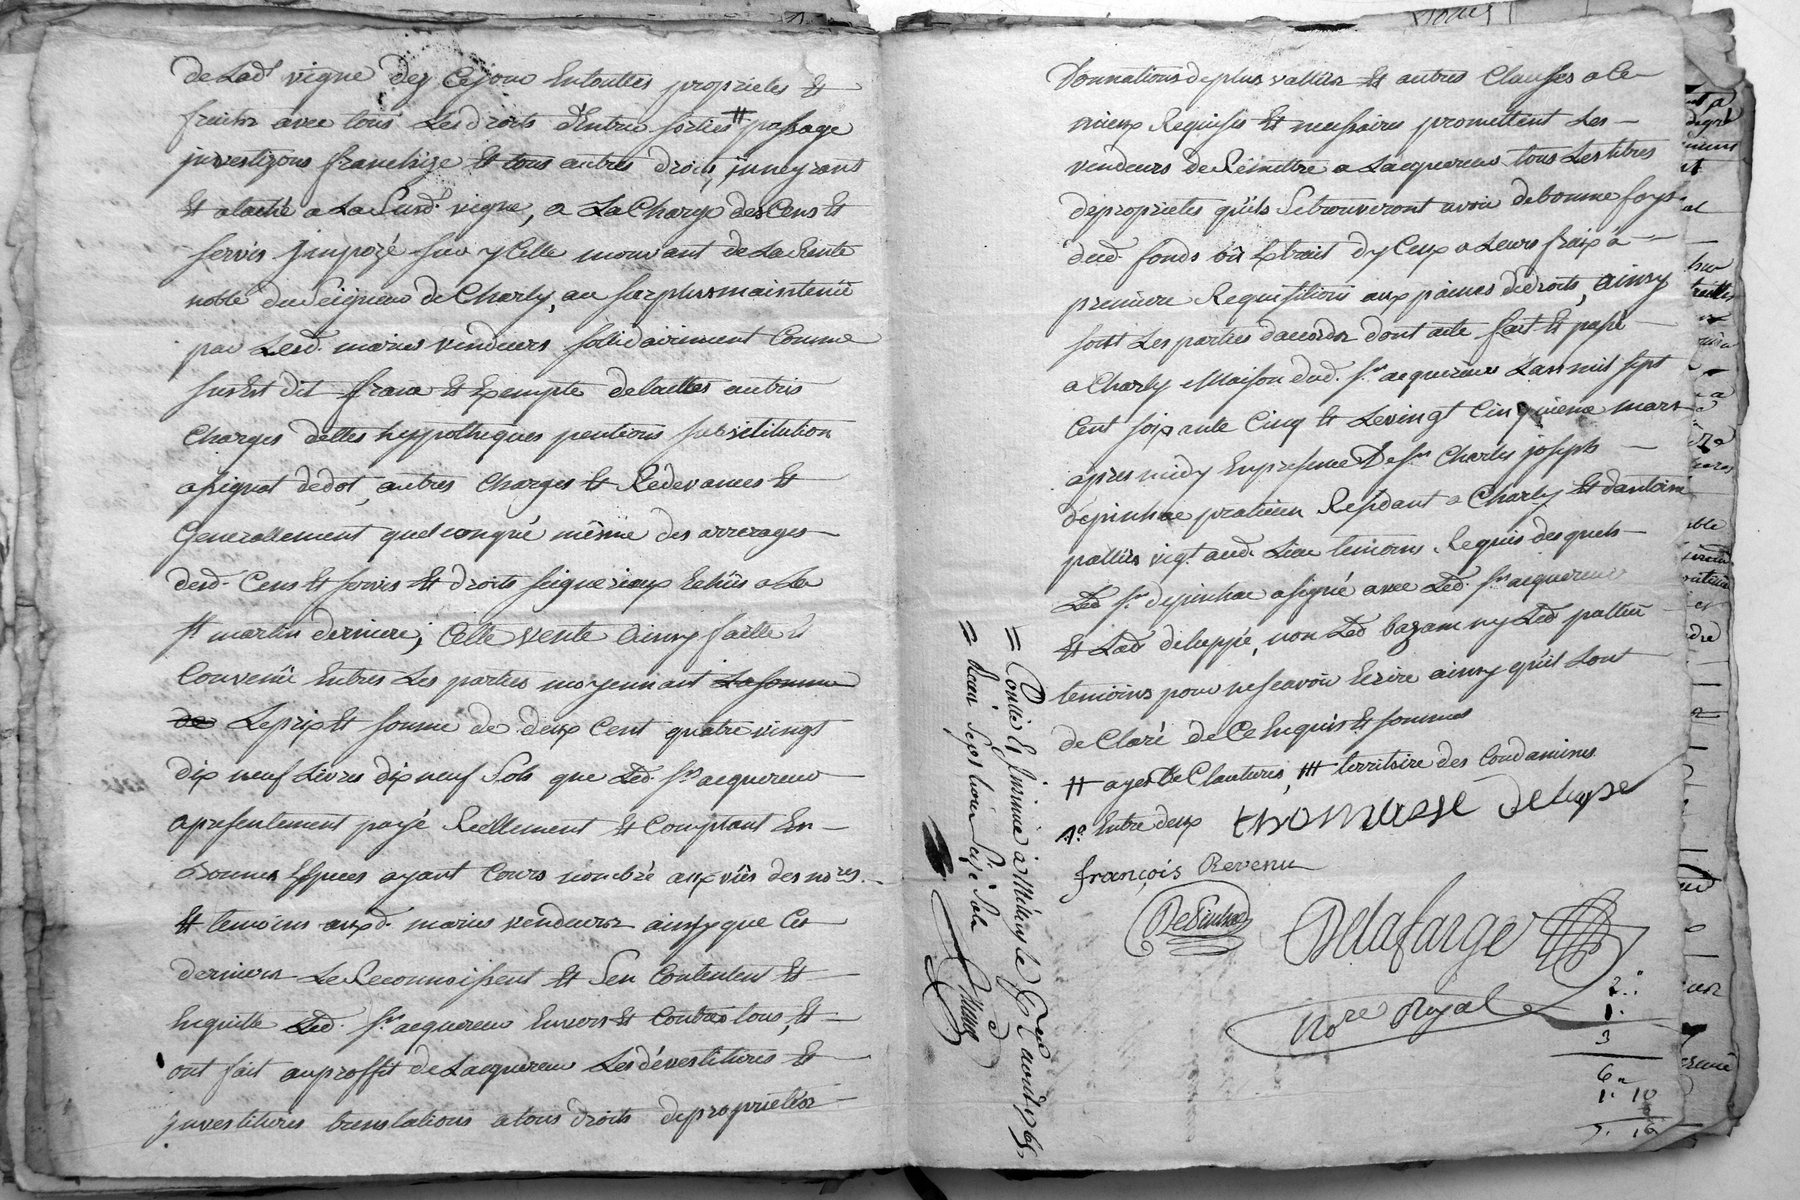 de Lad. vigne dez Ce jour En touttes proprietes Et
fruits avec tous Les droits d'Entrée sorties # passage
investizons franchize Et tous autres droits, juneyrants
Et ataché a La Susd. vigne, a La Charge des Cens Et
servis jmpozé sur yCelle mouvant de La Rente
noble du Seigneur de Charly, au surplus maintenüe
par Lesd. mariés vendeurs sollidairement Comme
sus Est dit franc Et Exempte de touttes autres
Charges dettes hyppotheques pentions substitution
assignat de dot, autres Charges Et Redevances Et
Generallement quelconque même des arrerages
desd. Cens Et servis Et droits seigneriaux Echüs a La
st martin derniere; Cette vente Ainsy faitte Et
Convenüe Entres Les parties moyennant La somme
de Le prix Et somme de deux Cent quatre vingt
dix neuf Livres dix neuf Sols que Led. sr. acquereur
a presentement payé Reellement Et Comptant En
Bonnes Especes ayant Cours nombré aux vües des nores.
Et temoins auxd. mariés vendeurs ainsy que Ces
derniers Le Reconnoissent Et S'en Contentent Et
En quitte Led. sr. acquereur Envers Et Contre tous, Et
ont fait au proffit de L'acquereur Les dévestitures Et
jnvestitures translations a tous droits de proprietes
Donnations de plus vallüe Et autres Clauses a Ce
mieux Requises Et necessaires promettent Les
vendeurs de Rémettre a L'acquereur tous Les titres
de proprietes qu'ils Se trouveront avoir de bonne foys
dud. fonds ou Extrait d'yCeux a Leurs fraix a
premiere Requisitions aux peines de droits, Ainsy
sont Les parties d'accords dont acte fait Et passé
a Charly Maison dud. sr. acquereur L'an mil sept
Cent soixante Cinq Et Le vingt Cinquieme mars
apres midy En presence De sr. Charles joseph
depinhac praticien Residant a Charly Et d'antoine
vigt. aud. Lieu temoins Requis desquels
Led. sr. depinhac a signé avec Led. sr. acquereur
Et Lad. non Led. ny Led.
temoins pour ne sçavoir Ecrire ainsy qu'il Sont
de Claré de Ce Enquis Et sommés
# ayes Et Clautures, ### territoire des Condamines
Entre deux thomasse
françois Revenu
Depinhac
Delafarge
Nore Royal
2.
1.
3
6.
1. 10
7. 10
= Controllé Et Jnsinué à Millery Le aoust 1765
= Recu Sept Livres Seize Sols